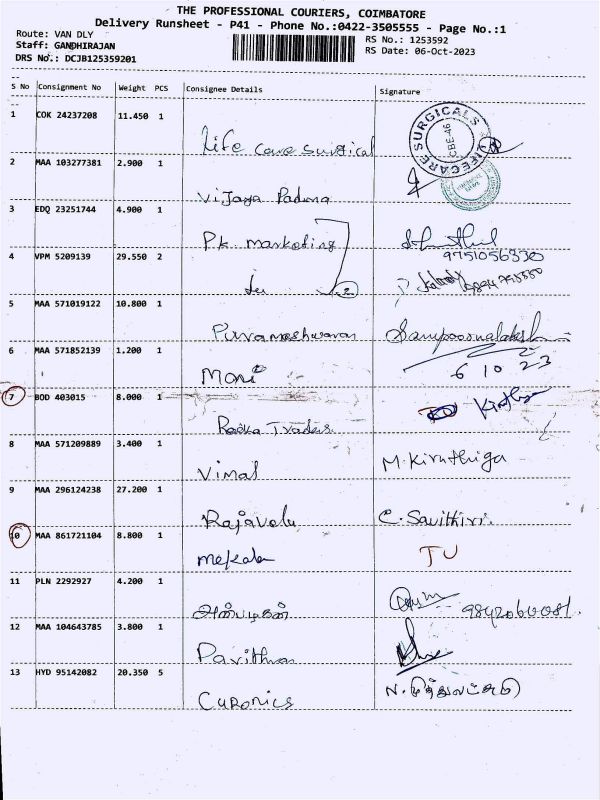 THE PROFESSIONAL COURIERS, COIMBATORE
Delivery Runsheet - P41 - Phone No.:0422-3505555 - Page No.:1
Route: VAN DLY
RS No.: 1253592
Staff: GANDHIRAJAN
RS Date: 06-Oct-2023
DRS No.: DCJB125359201
S No Consignment No Weight PCS Consignee Details Signature
1 COK 24237208 11.450 1
Life care surgical
LIFECARE SURGICALS CBE-46
2 MAA 103277381 2.900 1
Vijaya Padma
3 EDQ 23251744 4.900 1
P.K. marketing
9751056330
4 VPM 5209139 29.550 2
2
5 MAA 571019122 10.800 1
Purameshwaran Sampoornalakshmi
6 MAA 571852139 1.200 1
6 10 23
Mani
7 BOD 403015 8.000 1
Radka Traders
8 MAA 571209889 3.400 1
Vimal M.Kiruthiga
9 MAA 296124238 27.200 1
Rajavelu C. Savithiri.
10 MAA 861721104 8.800 1
Mekala TU
11 PLN 2292927 4.200 1
அன்பழகன் 9842060081.
12 MAA 104643785 3.800 1
Pavithra
13 HYD 95142082 20.350 5
Curonics ந.முத்துலட்சுமி